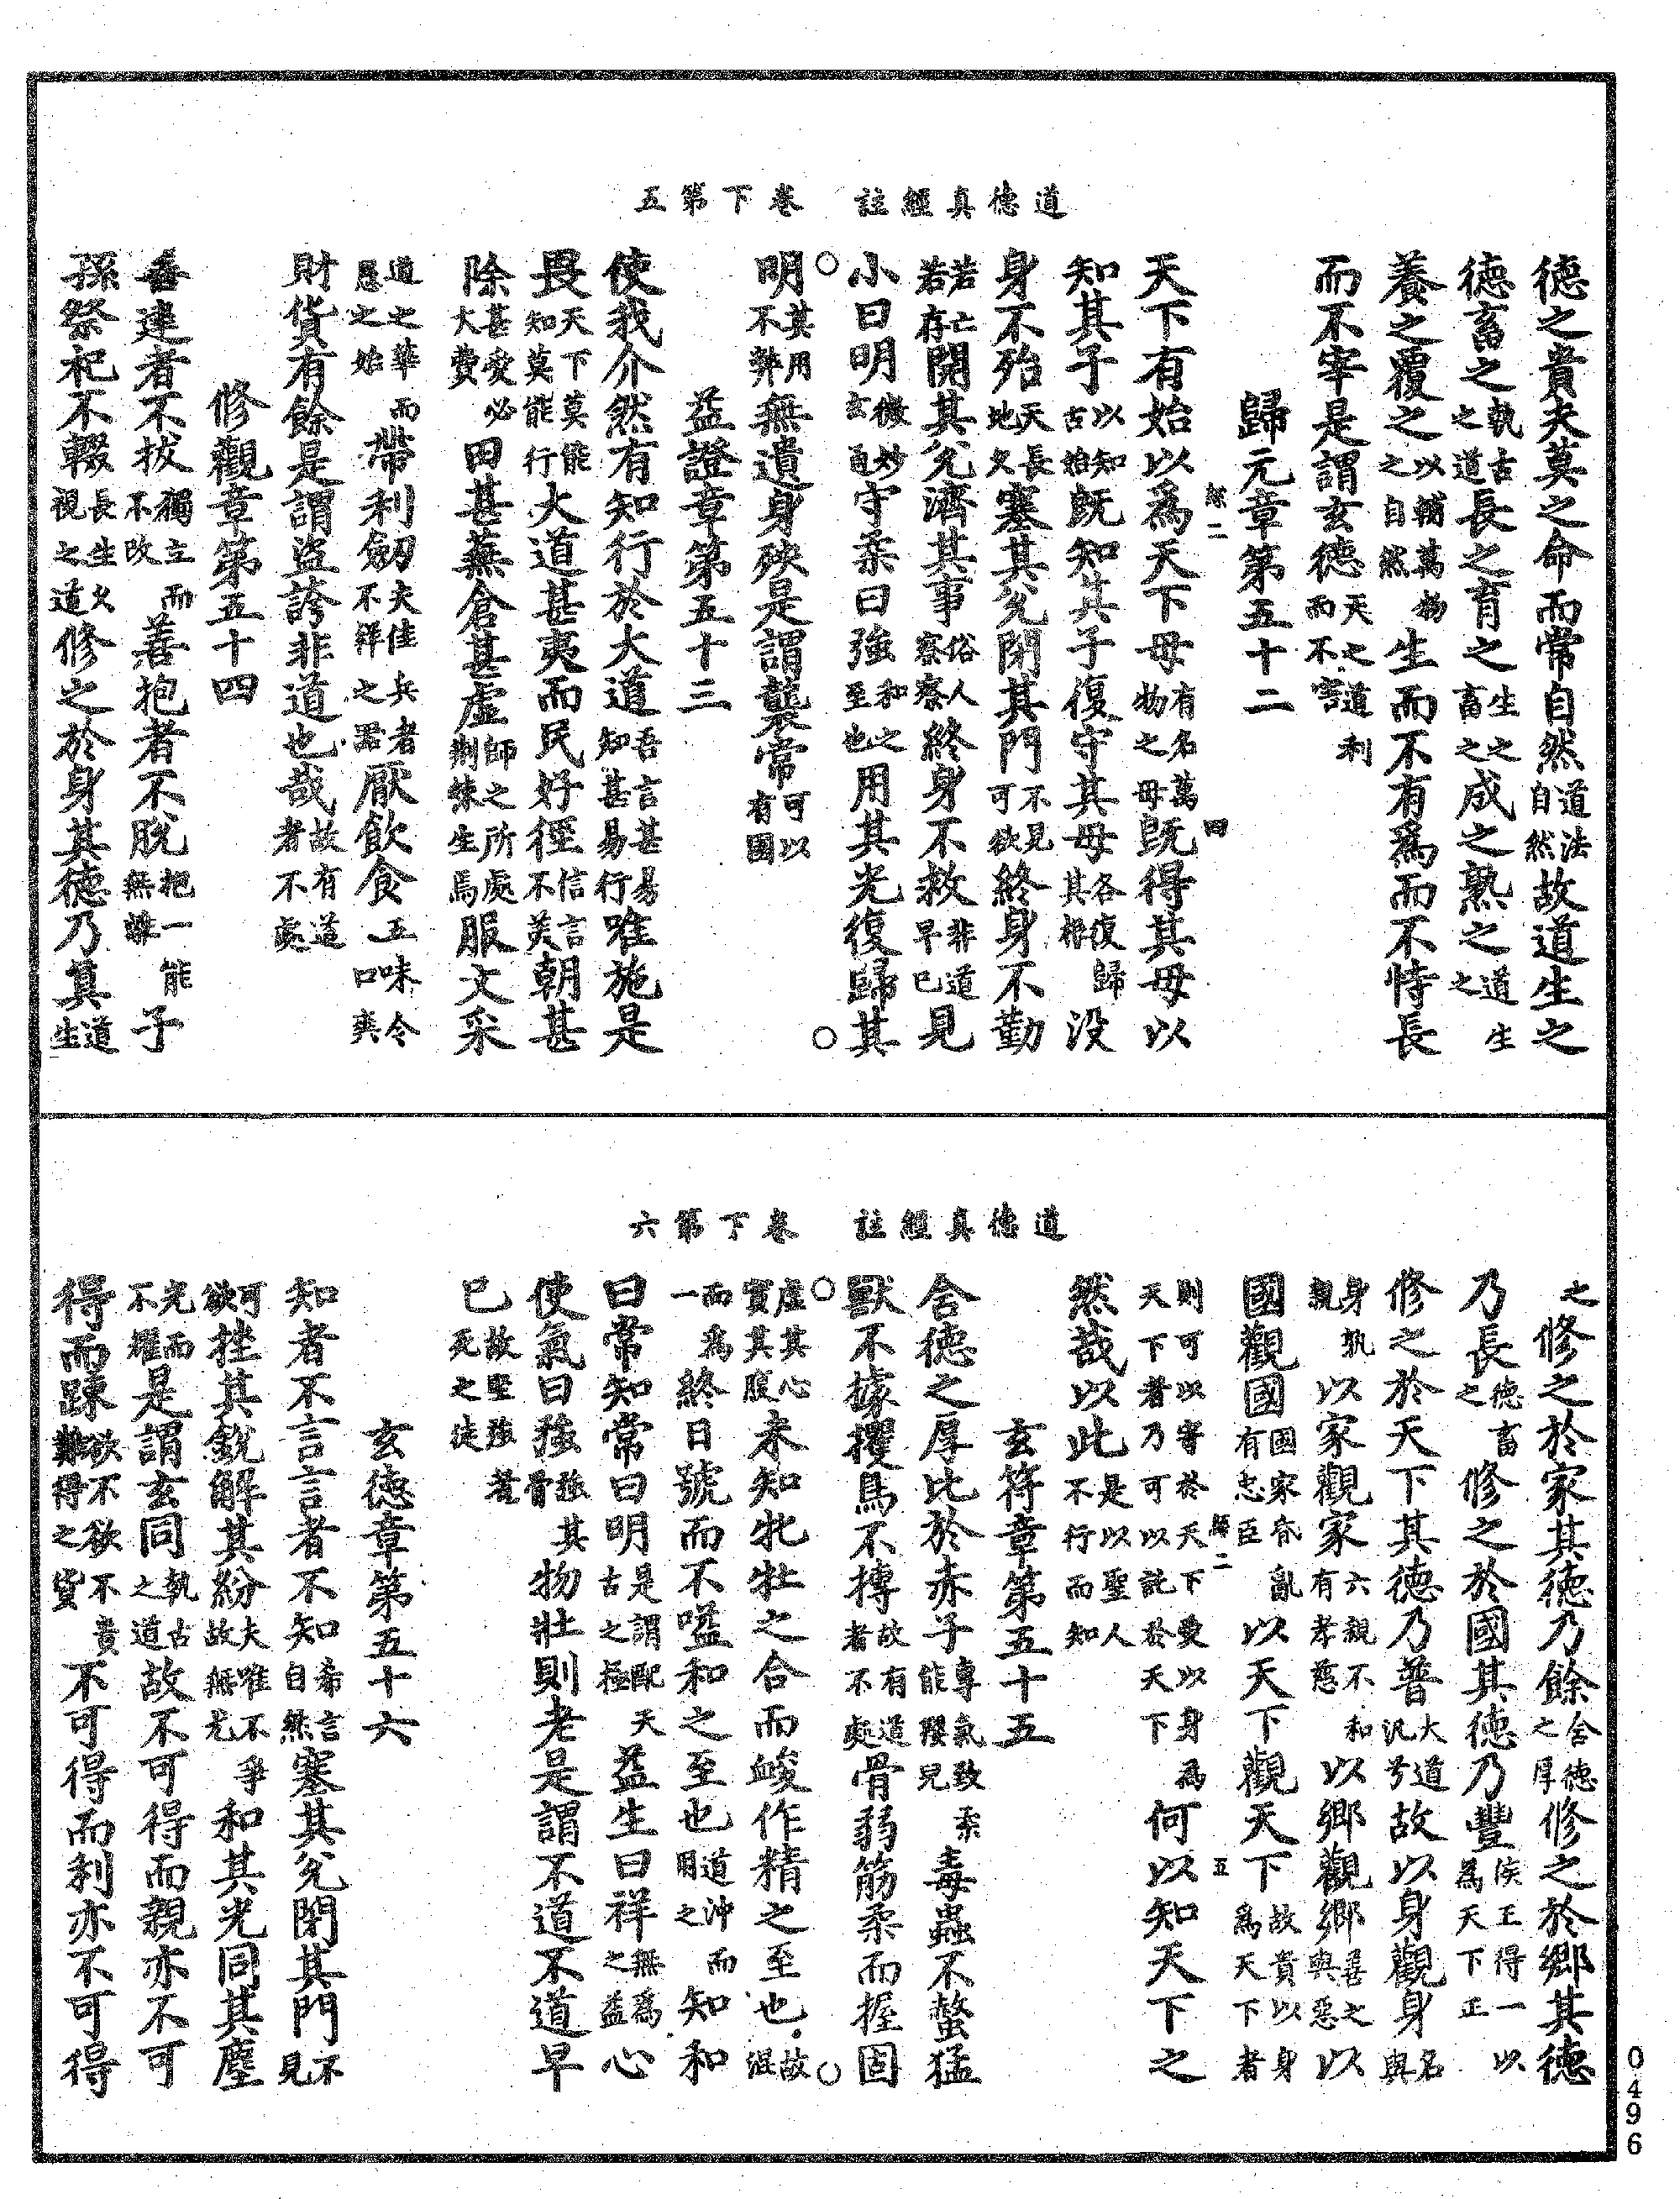 道德真經註　卷下第五
德之貴夫莫之命而常自然道法自然故道生之
德畜之執古之道長之育之生之畜之成之熟之道生之
養之覆之以輔萬物之自然生而不有爲而不恃長
而不宰是謂玄德天之道利而不害
歸元章第五十二
天下有始以爲天下母有名萬物之母既得其母以
知其子以知古始既知其子復守其母各復歸其根没
身不殆天長地久塞其兊閉其門不見可欲終身不勤
若亡若存開其兊濟其事俗人察察終身不救非道早已見
小曰明微妙玄通守柔曰強和之至也用其光復歸其
明其用不弊無遺身殃是謂襲常可以有國
益證章第五十三
使我介然有知行於大道吾言甚易知甚易行唯施是
畏天下莫能知莫能行大道甚夷而民好徑信言不美朝甚
除甚愛必大費田甚蕪倉甚虛師之所處荆棘生焉服文采
道之華而愚之始帶利劒夫佳兵者不祥之器厭飲食五味令人口爽
財貨有餘是謂盜誇非道也哉故有道者不處
修觀章第五十四
善建者不拔獨立而不改善抱者不脫抱一能無離子
孫祭祀不輟長生久視之道修之於身其德乃真道生
道德真經註　卷下第六
之修之於家其德乃餘含德之厚修之於鄉其德
乃長德畜之修之於國其德乃豐侯王得一以爲天下正
修之於天下其德乃普大道汎兮故以身觀身名與
身孰親以家觀家六親不和有孝慈以鄉觀鄉善之與惡以
國觀國國家昏亂有忠臣以天下觀天下故貴以身爲天下者
則可以寄於天下愛以身爲天下者乃可以託於天下何以知天下之
然哉以此是以聖人不行而知
玄符章第五十五
含德之厚比於赤子專氣致柔能嬰兒毒蟲不螫猛
獸不據攫鳥不搏故有道者不處骨弱筋柔而握固
虛其心實其腹未知牝牡之合而峻作精之至也故混
而爲一終日號而不嗌和之至也道沖而用之知和
曰常知常曰明是謂配天古之極益生曰祥無爲之益心
使氣曰強強其骨物壯則老是謂不道不道早
已故堅強者死之徒
玄德章第五十六
知者不言言者不知希言自然塞其兊閉其門不見
可欲挫其銳解其紛夫唯不爭故無尤和其光同其塵
光而不耀是謂玄同執古之道故不可得而親亦不可
得而踈欲不欲不貴難得之貨不可得而利亦不可得
0496